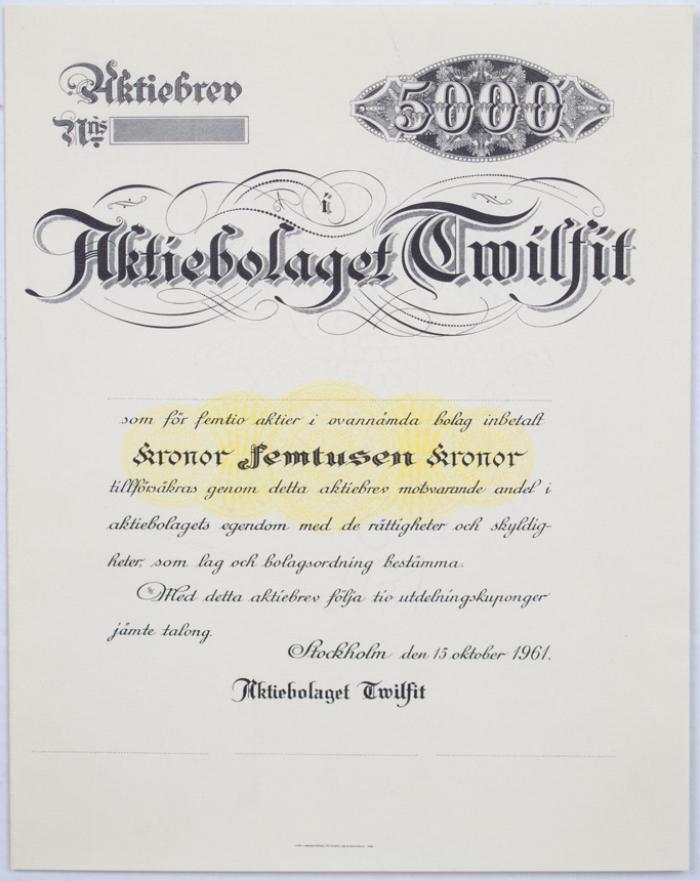 Aktiebrev
Nris
5000
i
Aktiebolaget Twilfit
som för femtio aktier i ovannämda bolag inbetalt
Kronor Femtusen Kronor
tillförsäkras genom detta aktiebrev motsvarande andel i
aktiebolagets egendom med de rättigheter och skyldig-
heter, som lag och bolagsordning bestämma.
Med detta aktiebrev följa tio utdelningskuponger
jämte talong.
Stockholm den 15 oktober 1961.
Aktiebolaget Twilfit